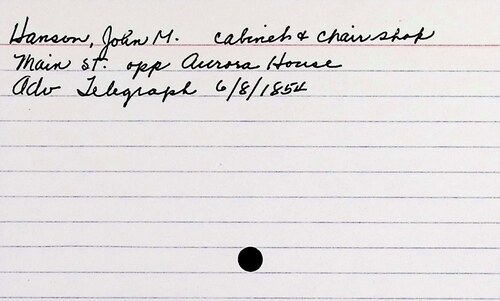 Hanson, John M. cabinet & chair shop
Main St. opp Aurora House
Adv Telegraph 6/8/1854